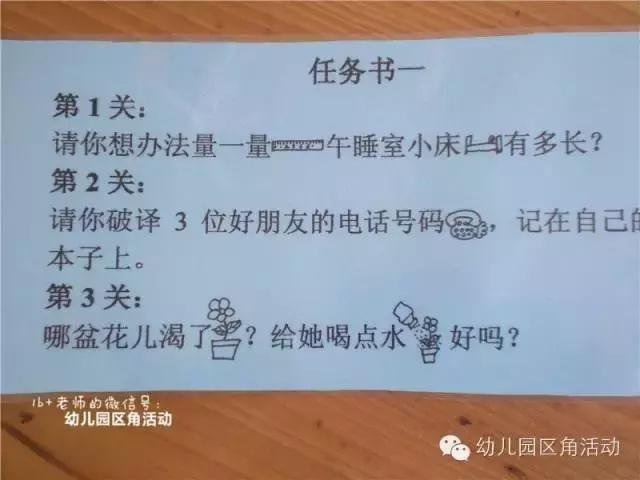 任务书一
第1关：
请你想办法量一量午睡室小床有多长？
第2关：
请你破译3位好朋友的电话号码，记在自己的
本子上。
第3关：
哪盆花儿渴了？给她喝点水好吗？
16+老师的微信号：
幼儿园区角活动
幼儿园区角活动